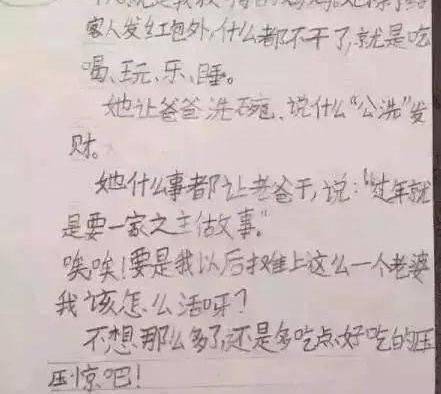 客人发红包外,什么都不干了,就是吃
喝、玩、乐、睡。
她让爸爸洗碗、说什么“公洗”发
财。
她什么事都让老爸干,说:“过年就
是要一家之主做事。”
唉唉!要是我以后摊上这么一个老婆
我该怎么活呀?
不想那么多了,还是多吃点好吃的压
压惊吧!